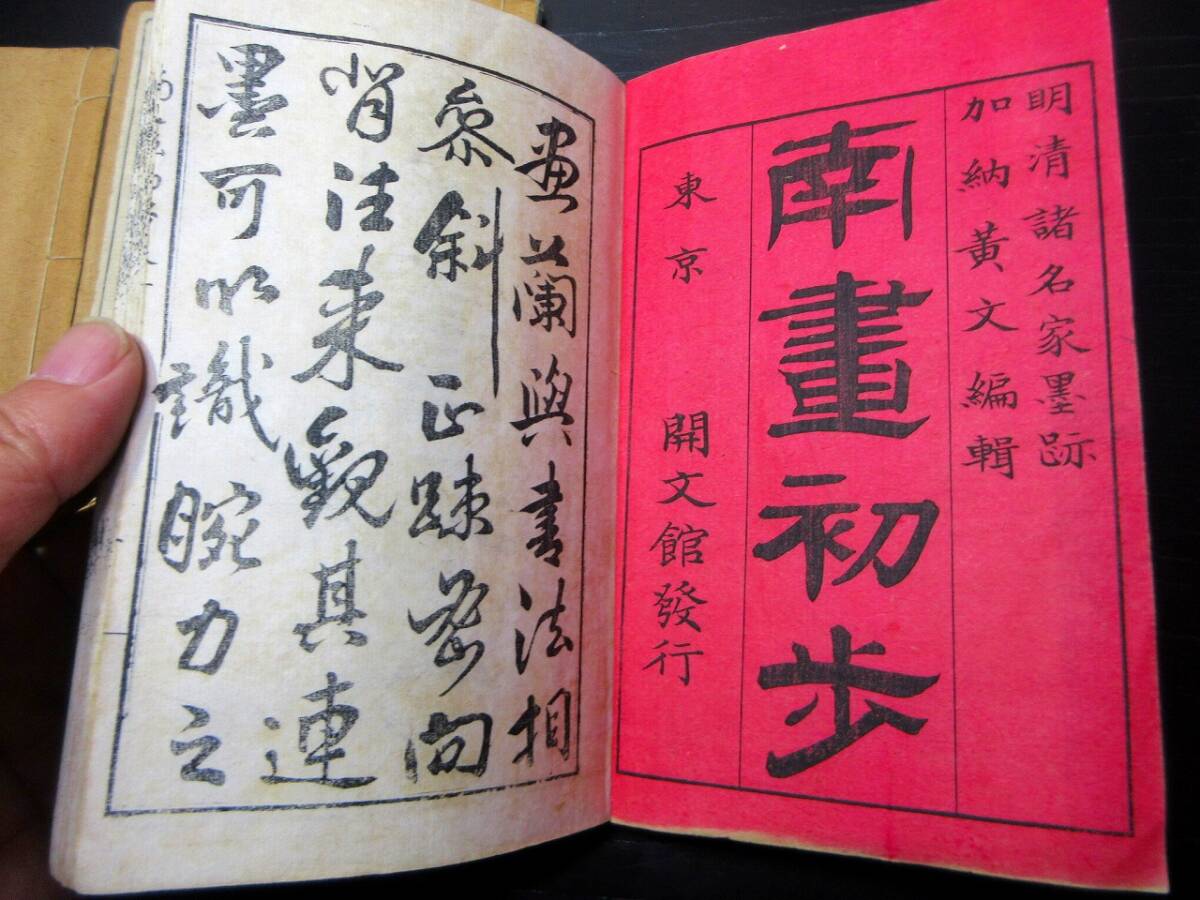 明清諸名家墨跡
加納黃文編輯
南畫初步
東京 開文館發行
畫蘭與書法相
參斜正疎密向
背法来觀其連
墨可以識腕力之